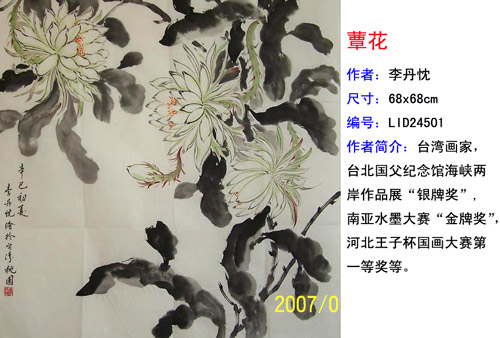 蕈花
作者：李丹忱
尺寸：68x68cm
编号：LID24501
作者简介：台湾画家，
台北国父纪念馆海峡两
岸作品展“银牌奖”，
南亚水墨大赛“金牌奖”，
河北王子杯国画大赛第
一等奖等。
辛巳初夏
李丹忱绘於台湾桃園
2007/0